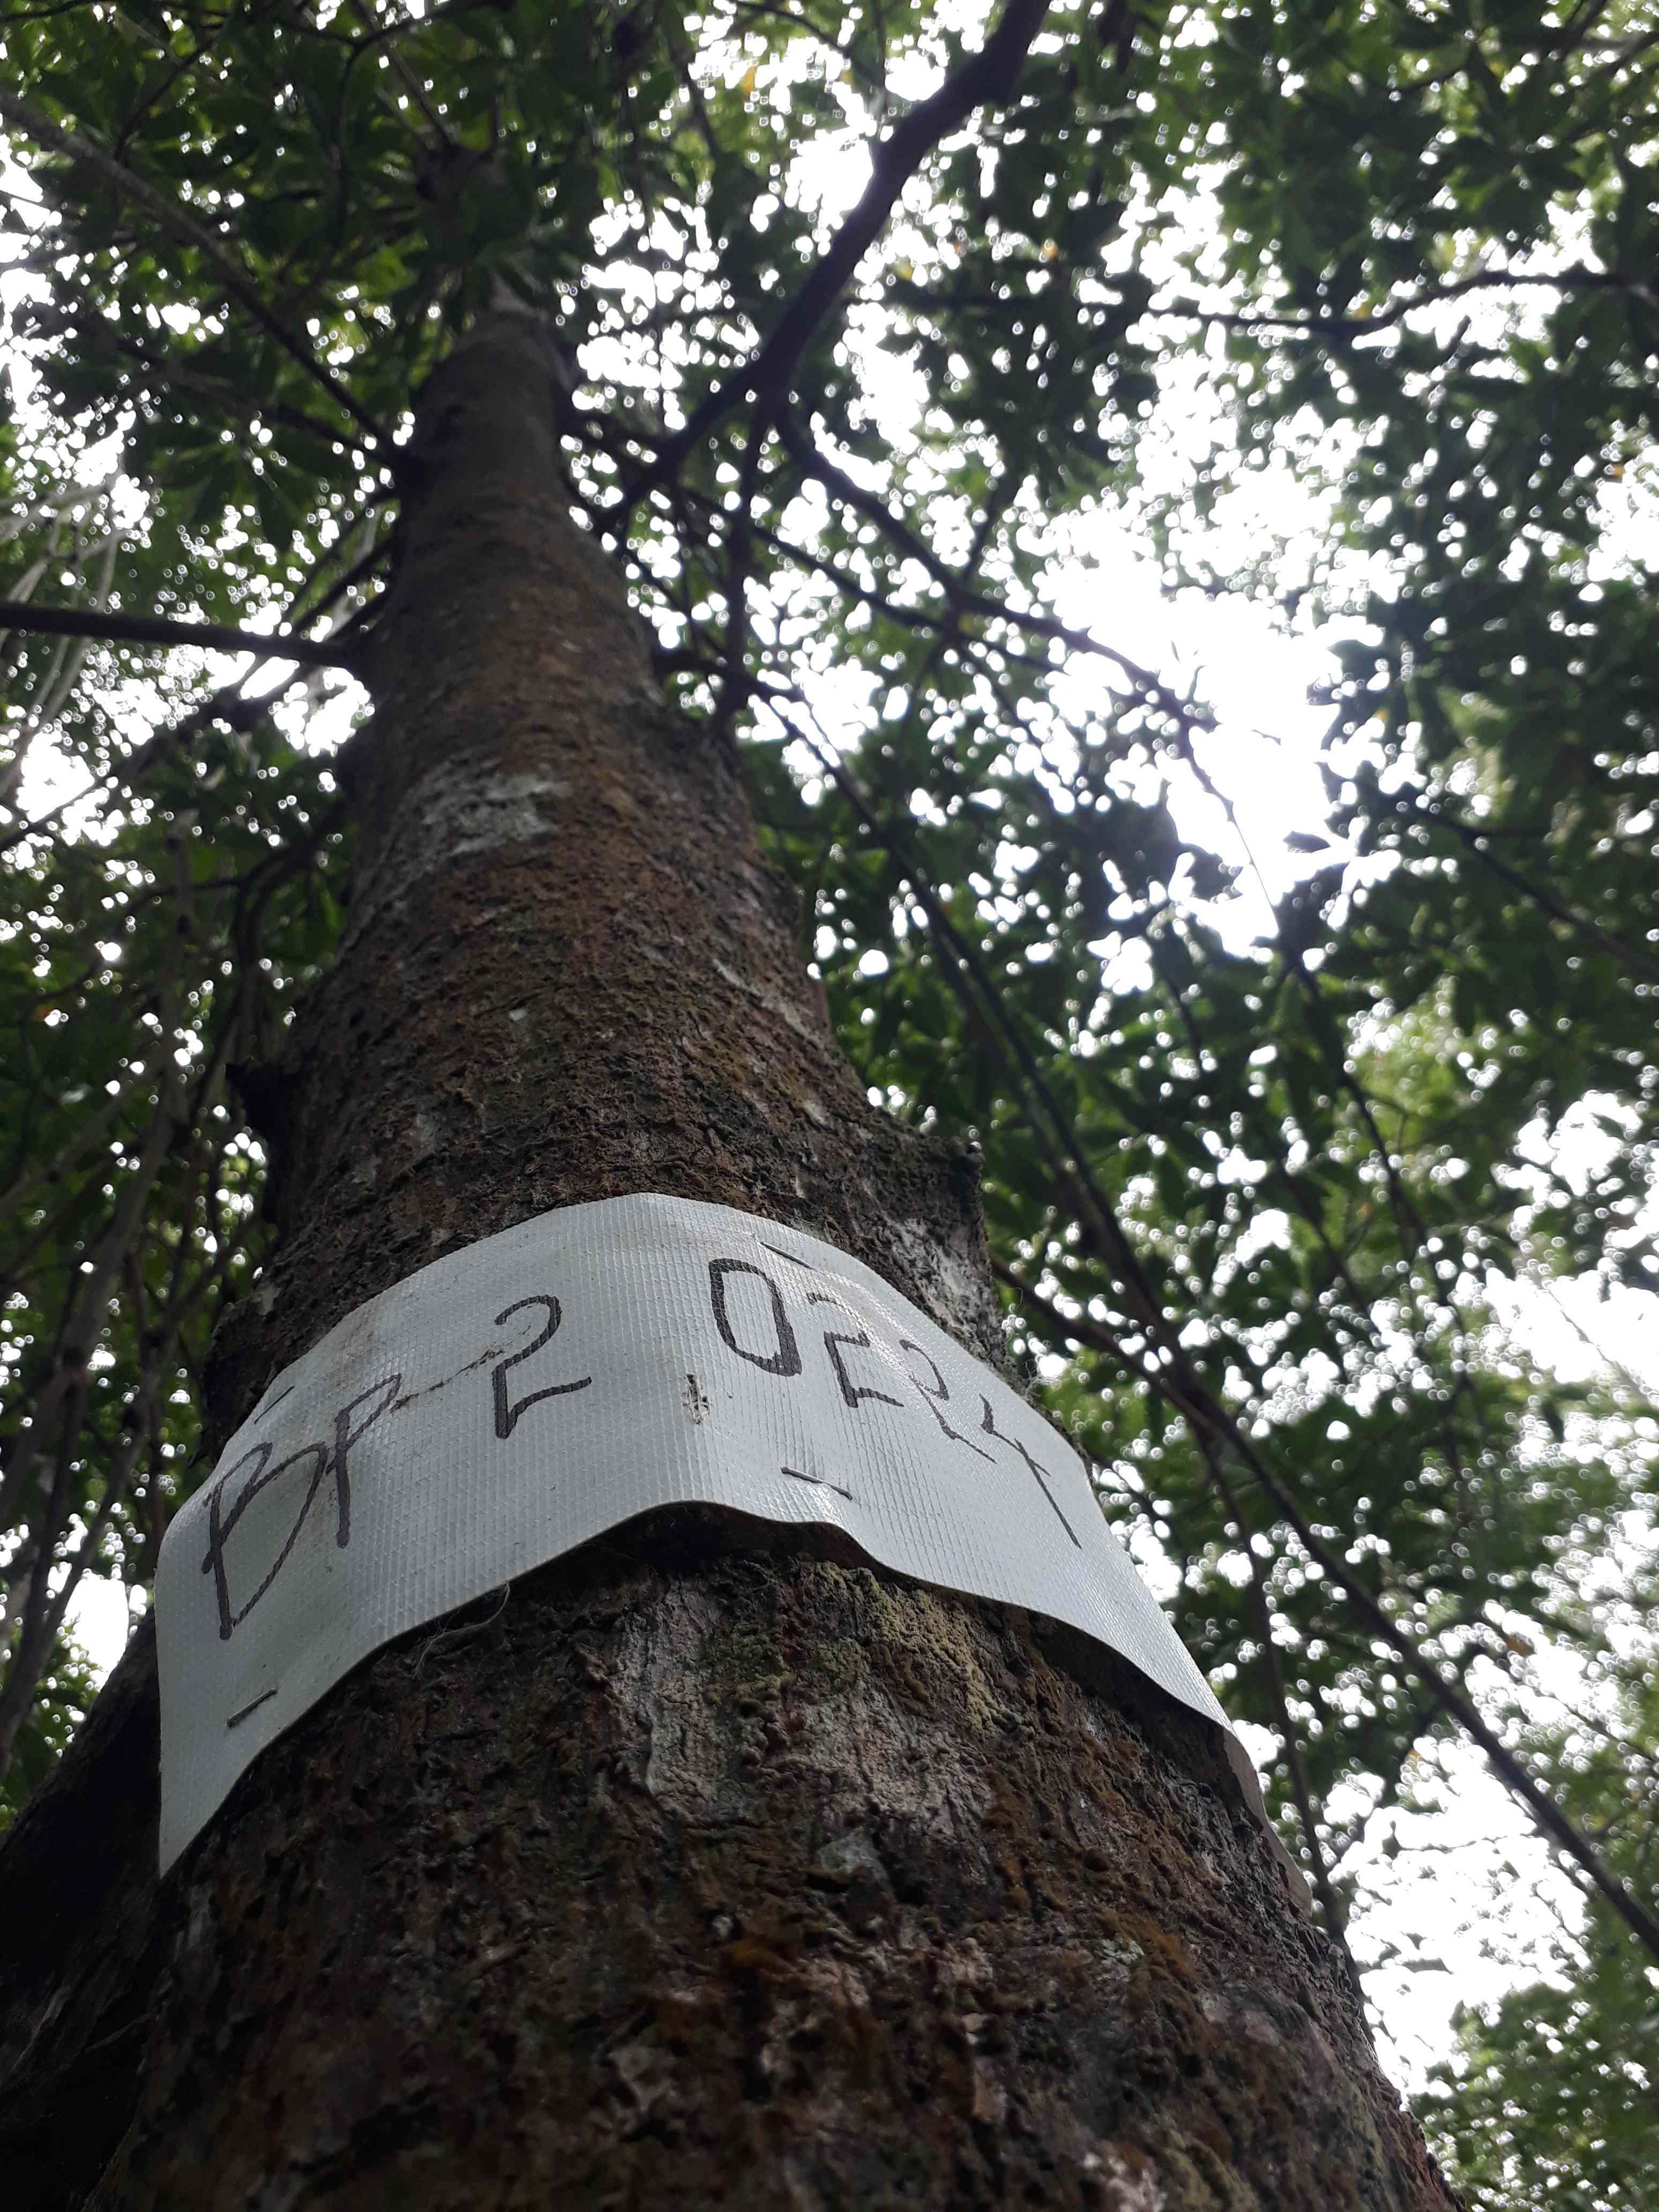 BP 2 0224